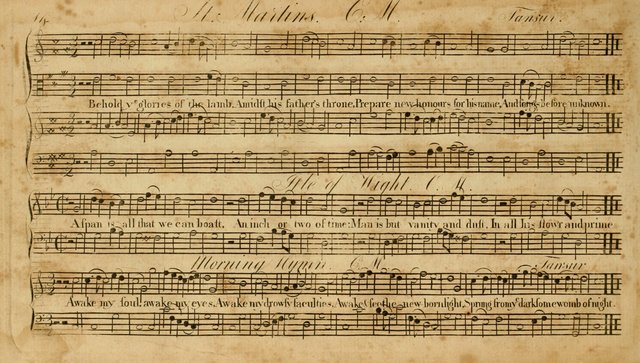 St. Martins. C. M. Tansur.
Behold yᵉ glories of the lamb, Amidſt his father's throne, Prepare new honours for his name, And songs before unknown.
Iſle of Wight. C. M.
A span is all that we can boaſt, An inch or two of time; Man is but vanity and duſt, In all his flowr and prime
Morning Hymn. C. M. Tansur
Awake my soul, awake my eyes, Awake my drowſy faculties, Awake & see the new born light, Spring from yᵉ darksome womb of night.